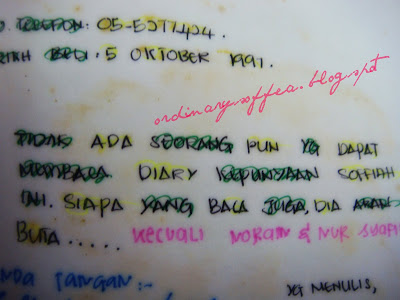 TELEFON: 05-5277404.
5 OKTOBER 1991.
ordinarysoffea.blogspot
TIDAK ADA SEORANG PUN YG DAPAT
MEMBACA DIARY KEPUNYAAN SOFFIAH
INI. SIAPA YANG BACA JUGA, DIA AKAN
BUTA...... KECUALI NORAIN & NUR SYAFI
NDA TANGAN:-
YG MENULIS,